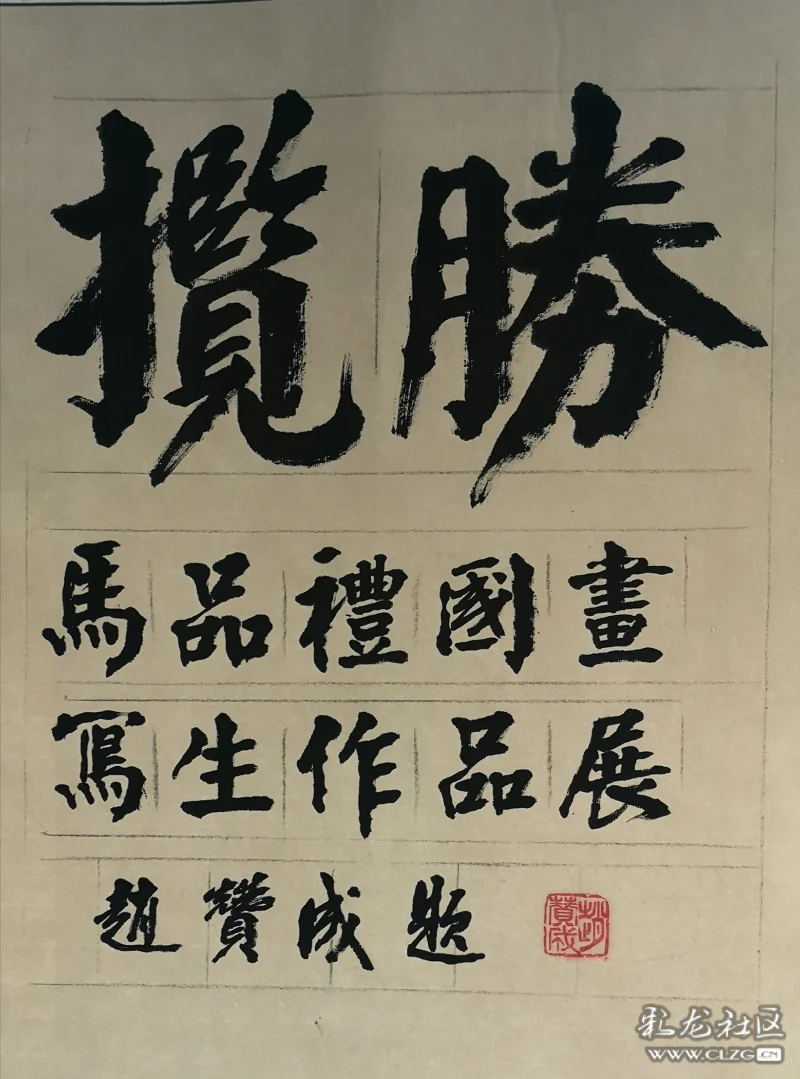 攬勝
馬品禮國畫
寫生作品展
趙贊成題
趙贊成
彩龙社区
www.CLZG.CN